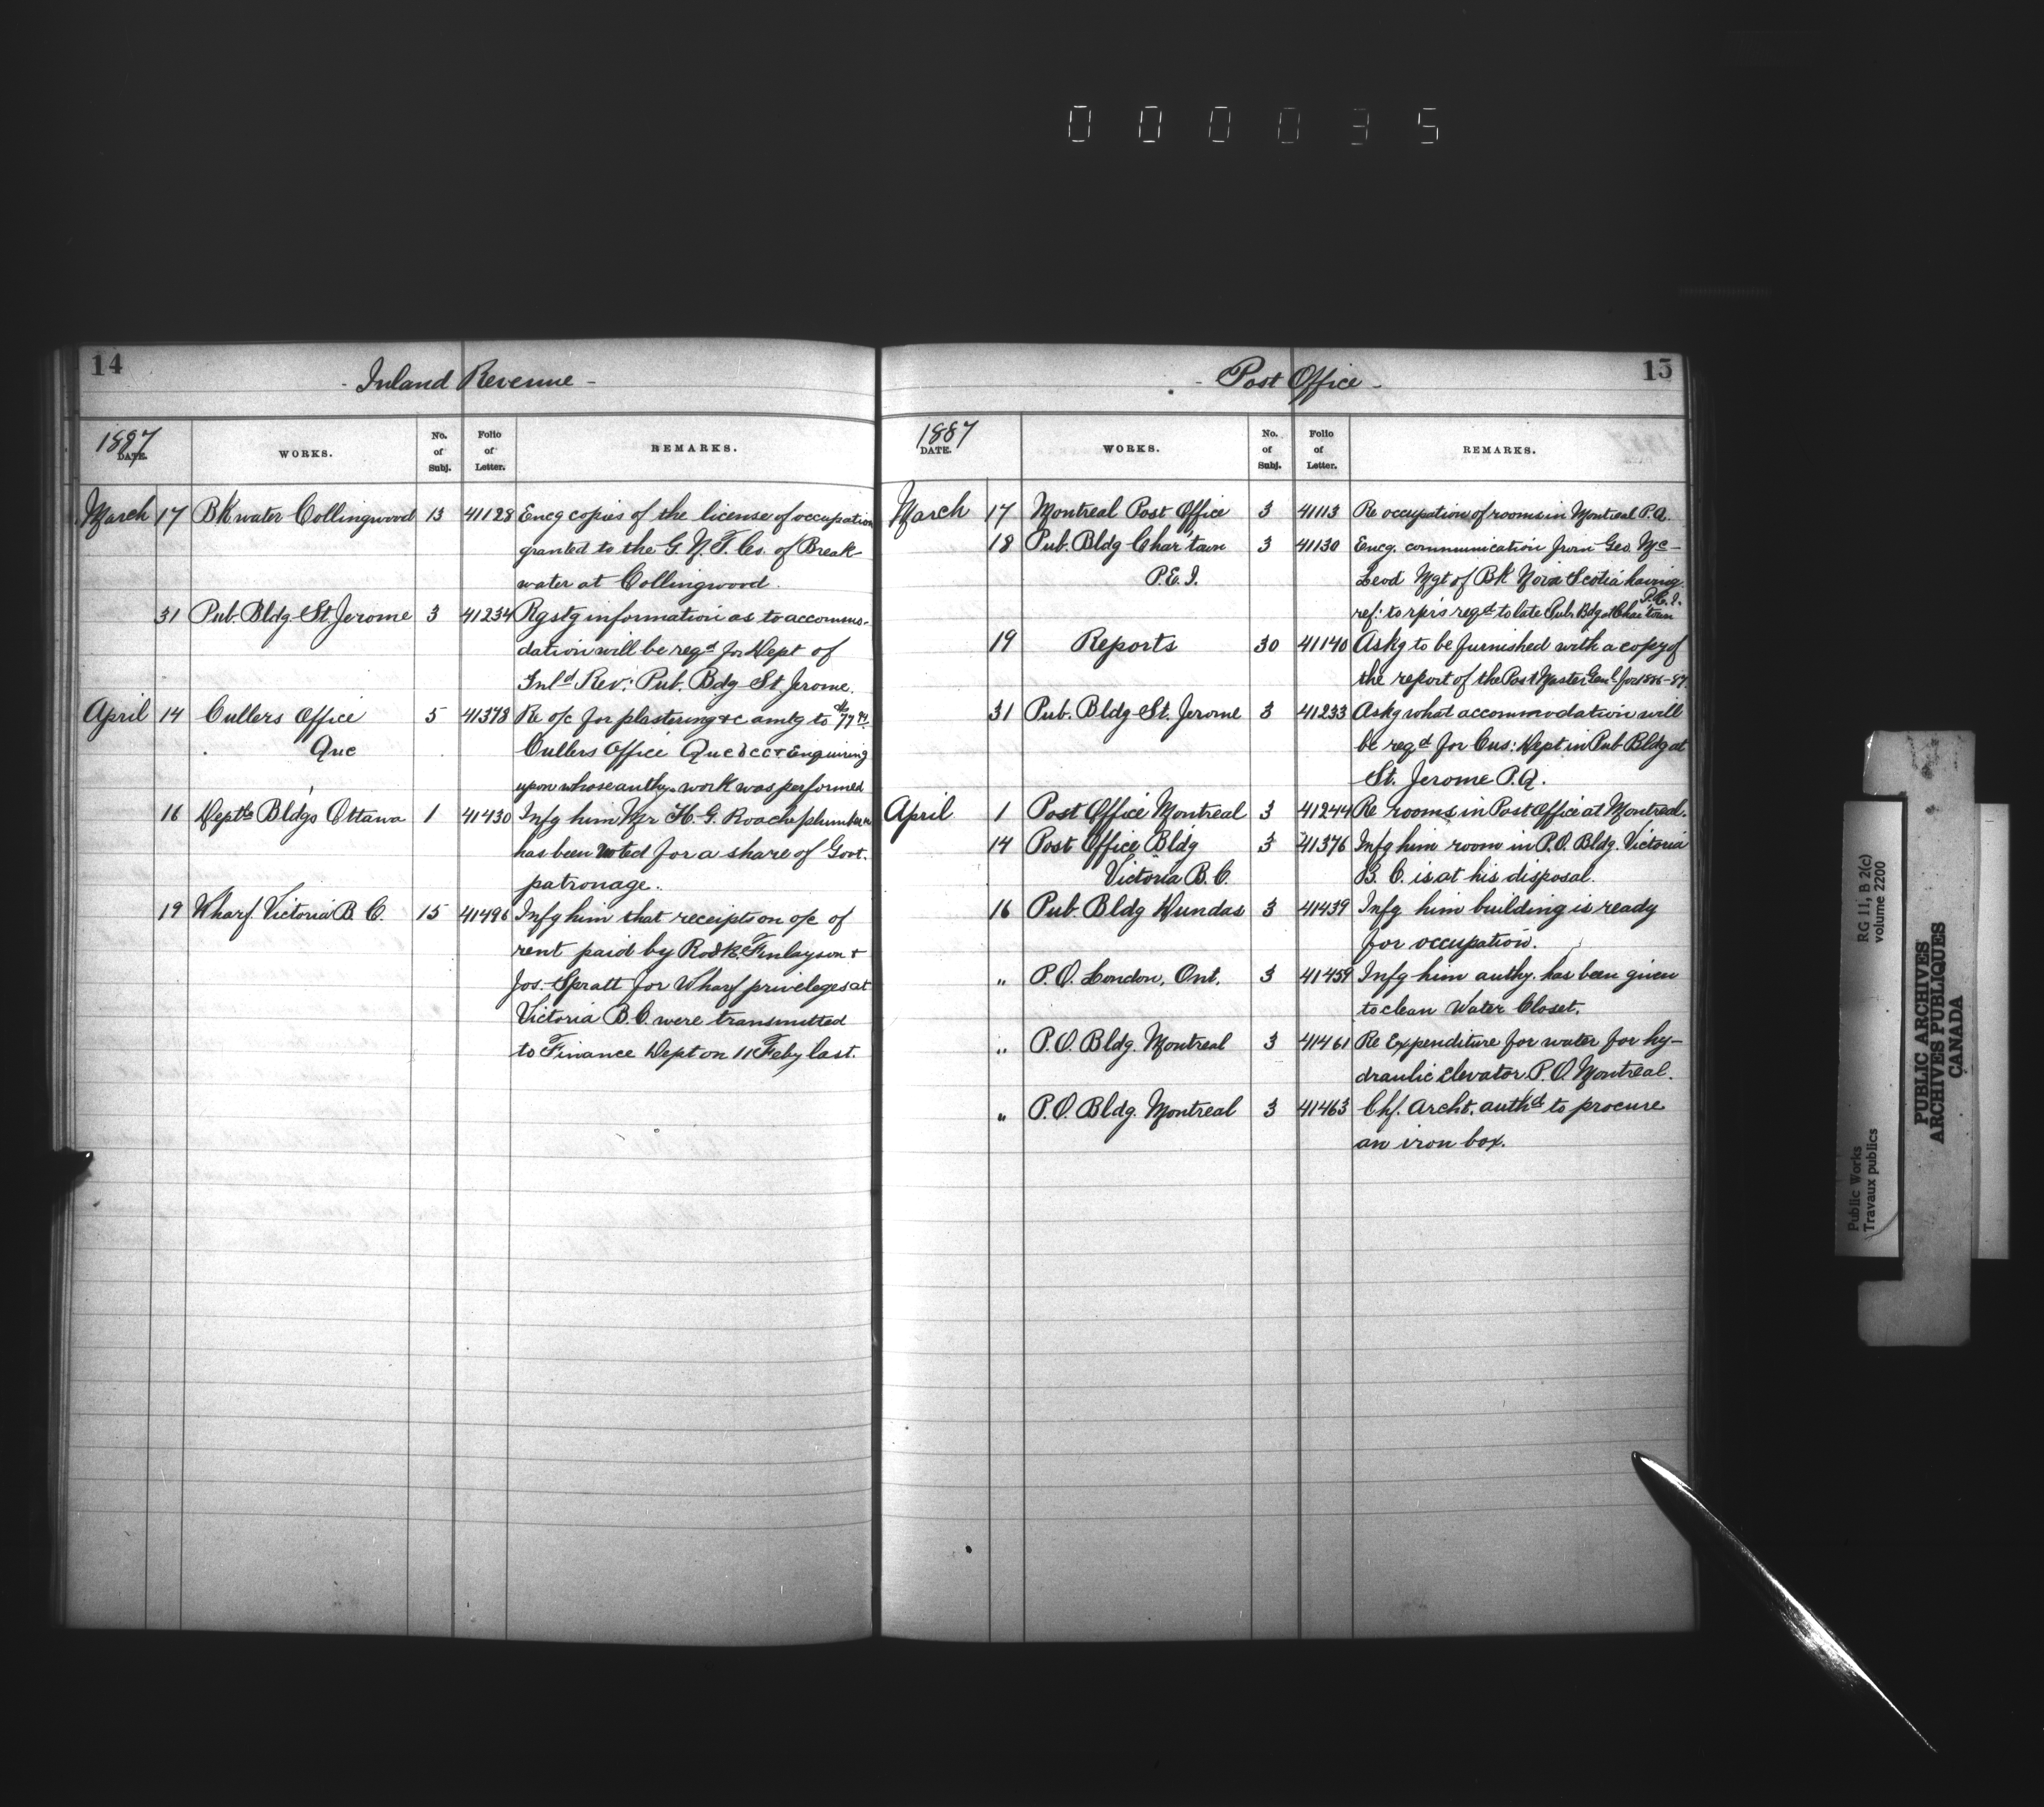 000035
14
- Inland Revenue -
1887
DATE.
WORKS.
No. of Subj.
Folio of Letter.
REMARKS.
March 17 BKwater Collingwood 13 41128 Encg copies of the license of occupation
granted to the G. N. T. Co. of Break-
water at Collingwood.
31 Pub. Bldg St. Jerome 3 41234 Rqstg information as to accommo-
dation will be reqd for Dept of
Inld Rev: Pub. Bdg St. Jerome.
April 14 Cullers Office 5 41378 Re o/c for plastering &c amtg to
Que Cullers Office Quebec & Enquiring
upon whose authy. work was performed
16 Deptl Bldgs Ottawa 1 41430 Infg him Mr H. G. Roache plumber
has been noted for a share of Govt.
patronage.
19 Wharf. Victoria B. C. 15 41496 Infg him that receipts on o/c of
rent paid by Rodk. Finlayson +
Jos. Spratt for Wharf privileges at
Victoria B. C. were transmitted
to Finance Dept on 11 Feby last.
15
- Post Office -
1887
DATE.
WORKS.
No. of Subj.
Folio of Letter.
REMARKS.
March 17 Montreal Post Office 3 41113 Re occupation of rooms in Montreal P.Q.
18 Pub. Bldg Char'town 3 41130 Encg. communication from Geo. Mc-
P.E.I. Leod Mgt of BK Nova Scotia having
P.E.I.
ref: to rprs reqd to late Pub. Bdg at Char'town
19 Reports 30 41140 Askg to be furnished with a copy of
the report of the Post Master Genl. for 1886-87.
31 Pub. Bldg St. Jerome 3 41233 Askg what accommodation will
be reqd for Cus: Dept in Pub Bldg at
St. Jerome P.Q.
April 1 Post Office Montreal 3 41244 Re rooms in Post Office at Montreal.
14 Post Office Bldg 3 41376 Infg him room in P.O. Bldg. Victoria
Victoria B. C. B. C. is at his disposal.
16 Pub. Bldg Dundas 3 41439 Infg him building is ready
for occupation.
" P.O. London, Ont. 3 41459 Infg him authy. has been given
to clean Water Closet.
" P.O. Bldg. Montreal 3 41461 Re Expenditure for water for hy-
draulic Elevator P.O. Montreal.
" P.O. Bldg. Montreal 3 41463 Chf. Archt. authd to procure
an iron box.
Public Works
Travaux publics
RG 11, B 2(c)
volume 2200
PUBLIC ARCHIVES
ARCHIVES PUBLIQUES
CANADA